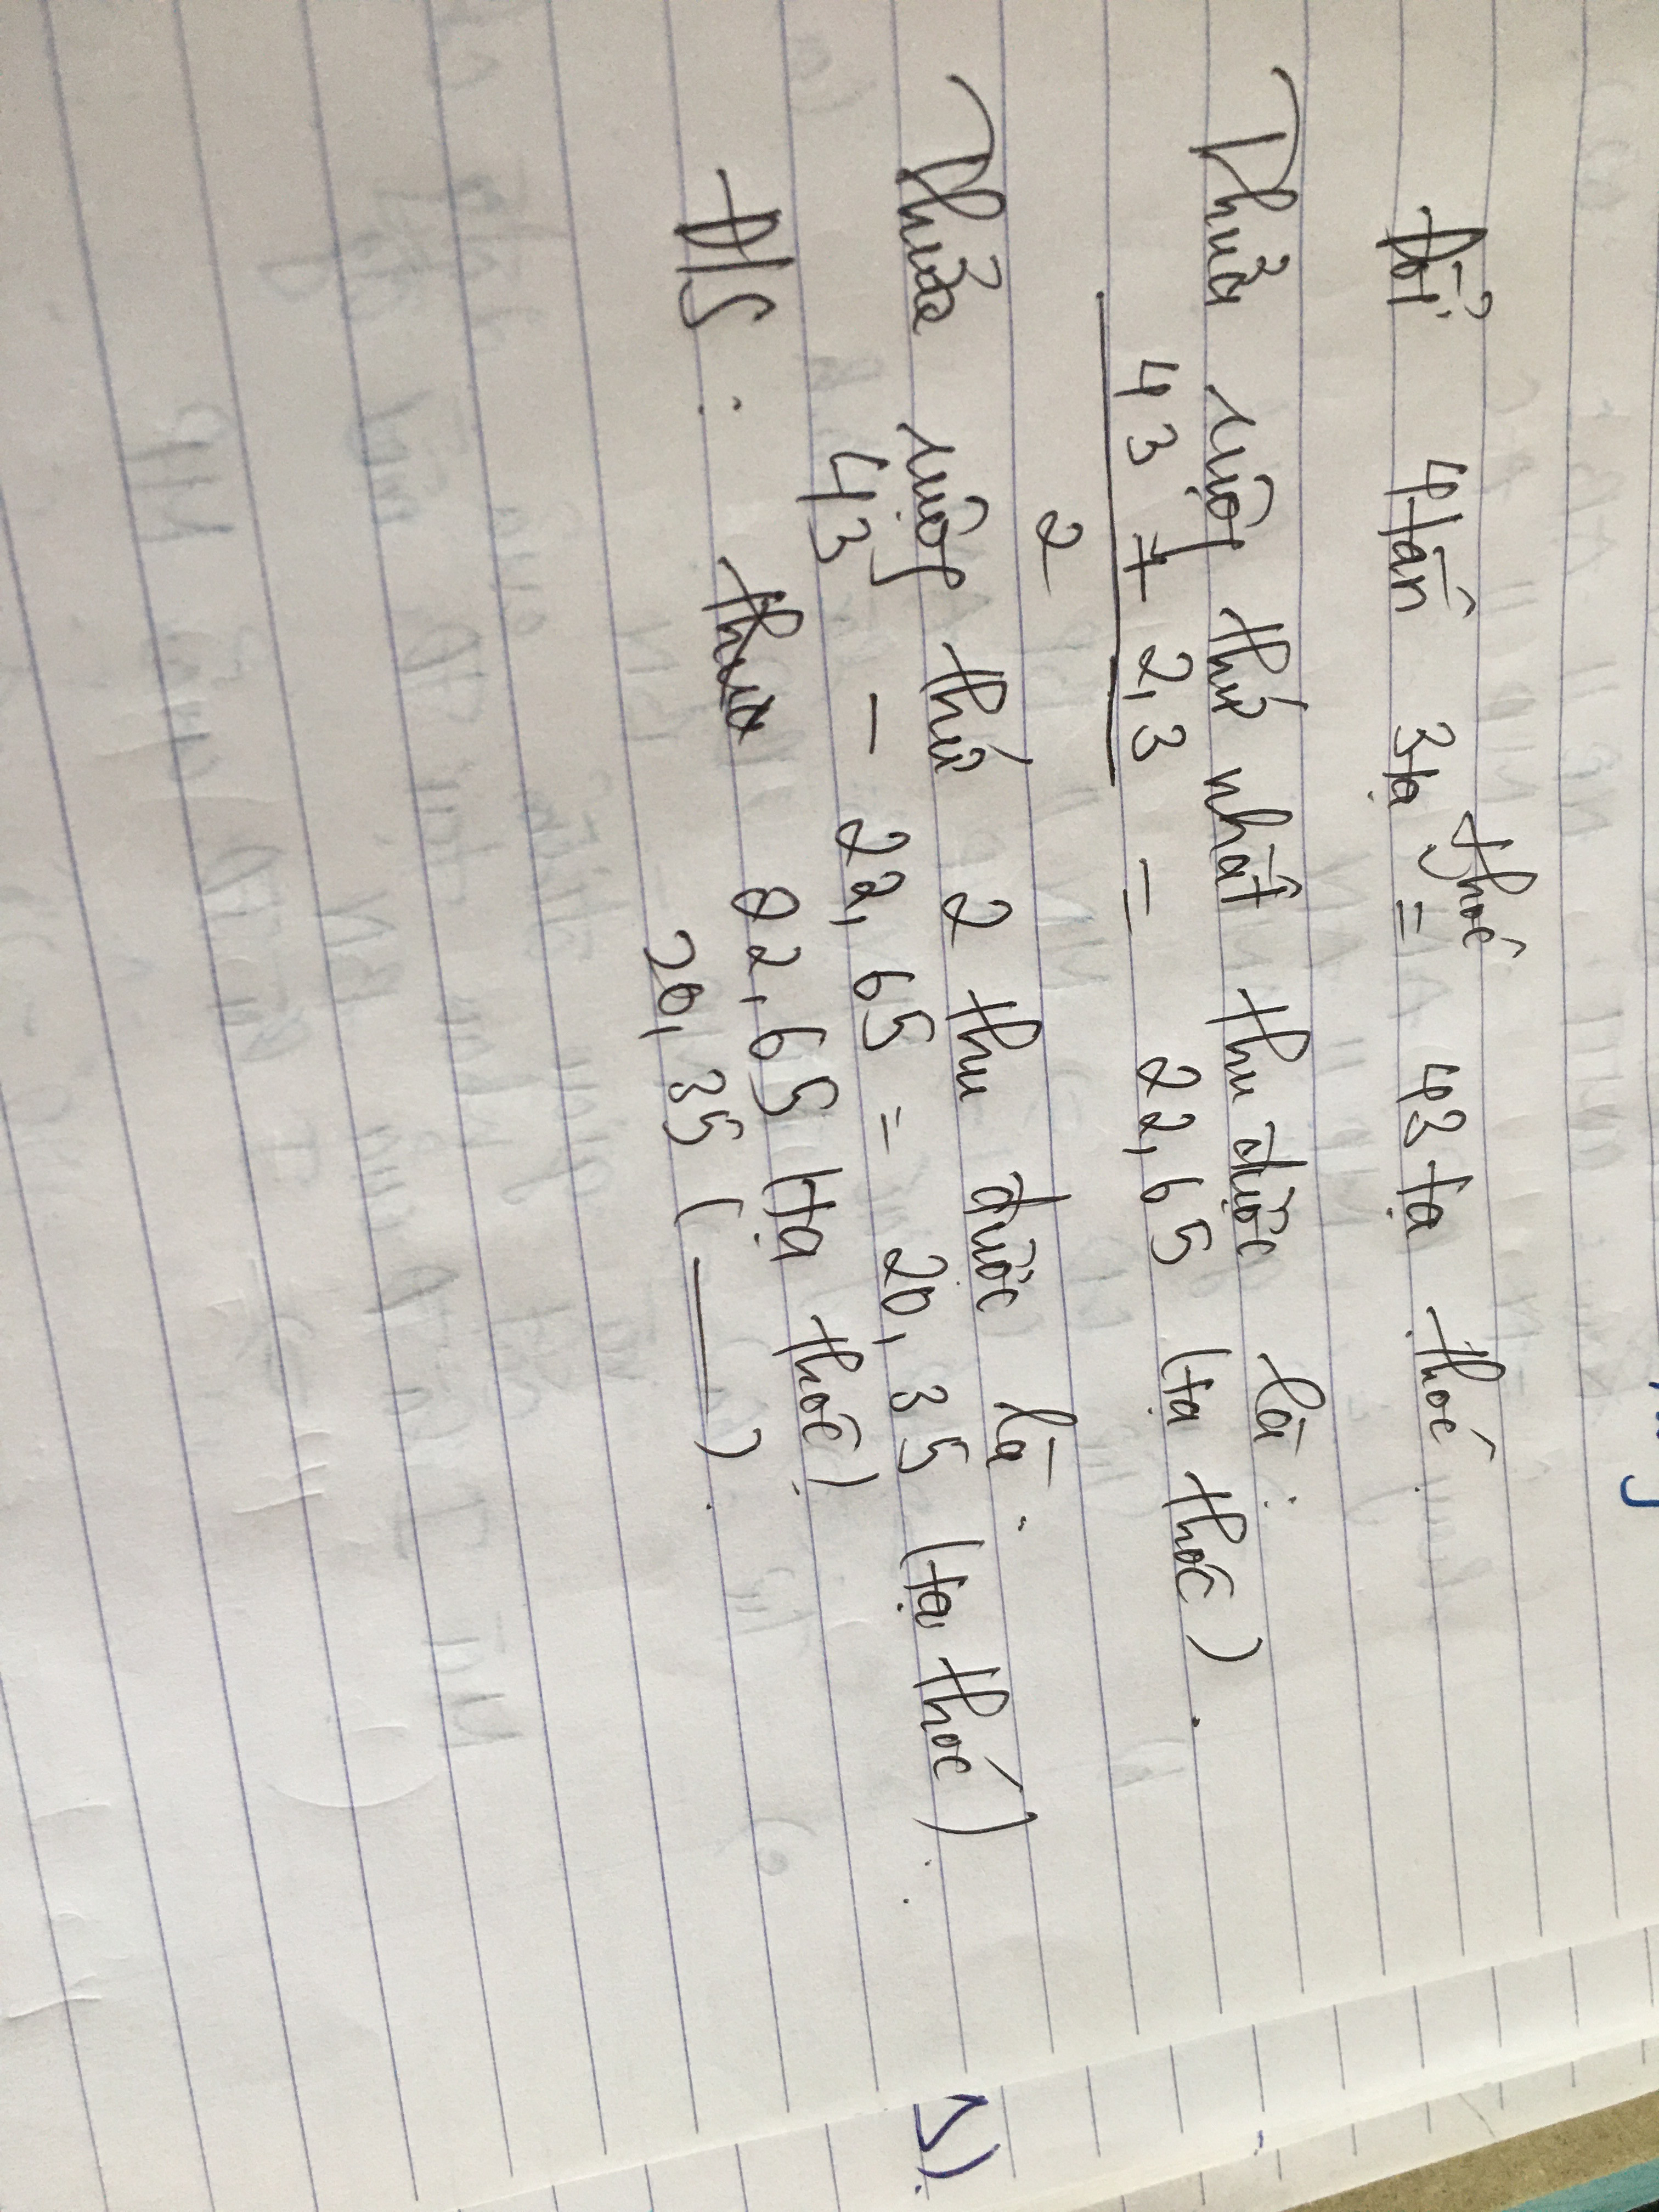 Đổi 4 tấn 3 tạ thóc = 43 tạ thóc
Thửa ruộng thứ nhất thu được là :
43 + 2,3 = 22,65 (tạ thóc).
2
Thửa ruộng thứ 2 thu được là :
43 - 22,65 = 20,35 (tạ thóc).
Đ/S : 22,65 (tạ thóc)
20,35 ( — ).
5).